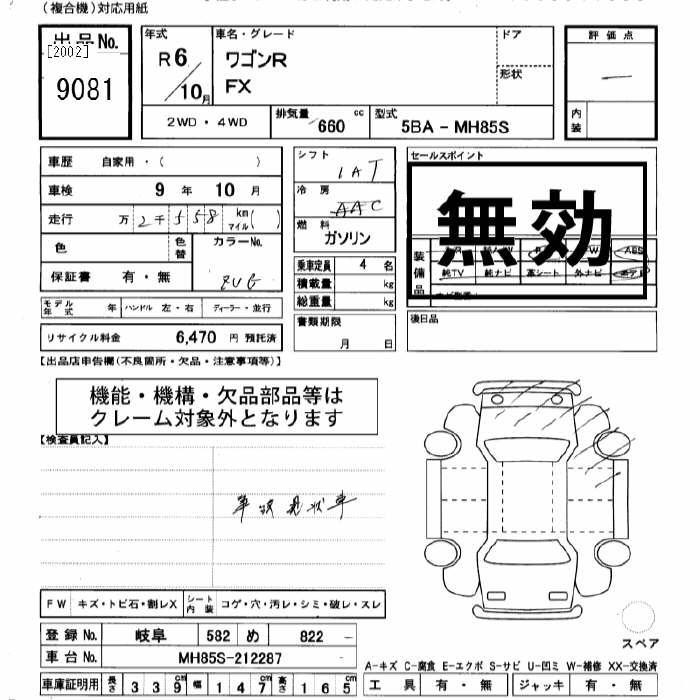 (複合機)対応用紙
出品No. [2002] 9081
年式 R6/10月
車名・グレード ワゴンR FX
ドア
形状
評価点 —
内装
2WD・4WD
排気量 660 cc
型式 5BA-MH85S
車歴 自家用・( )
車検 9年 10月
走行 万2千558 km マイル( )
色 色替 カラーNo. ZUG
保証書 有・無
モデル年式 年 ハンドル 左・右 ディーラー・並行
リサイクル料金 6,470 円 預託済
シフト IAT
冷房 AAC
燃料 ガソリン
乗車定員 4 名
積載量 kg
総重量 kg
書類期限 月 日
セールスポイント
無効
装備品
純TV 純ナビ 革シート 外ナビ
後日品
【出品店申告欄(不良箇所・欠品・注意事項等)】
機能・機構・欠品部品等は
クレーム対象外となります
【検査員記入】
事故現状車
FW キズ・トビ石・割レX シート内装 コゲ・穴・汚レ・シミ・破レ・スレ
登録No. 岐阜 582 め 822
車台No. MH85S-212287
車庫証明用 長さ 339cm 幅 147cm 高さ 165cm
スペア
A-キズ C-腐食 E-エクボ S-サビ U-凹ミ W-補修 XX-交換済
工具 有・無 ジャッキ 有・無